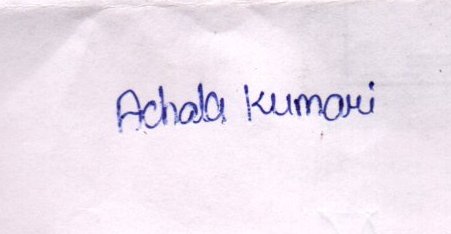 Achala Kumari